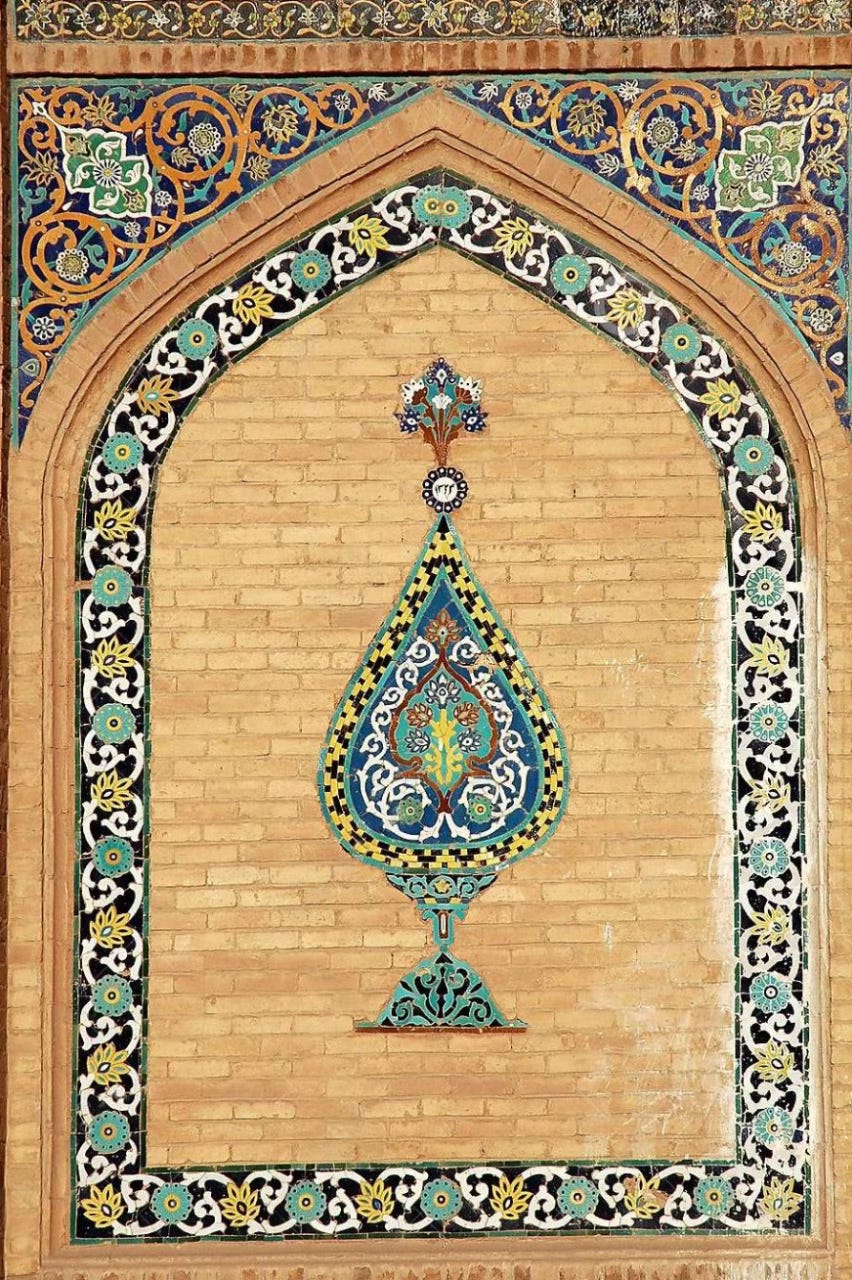 ۱۳۲۴